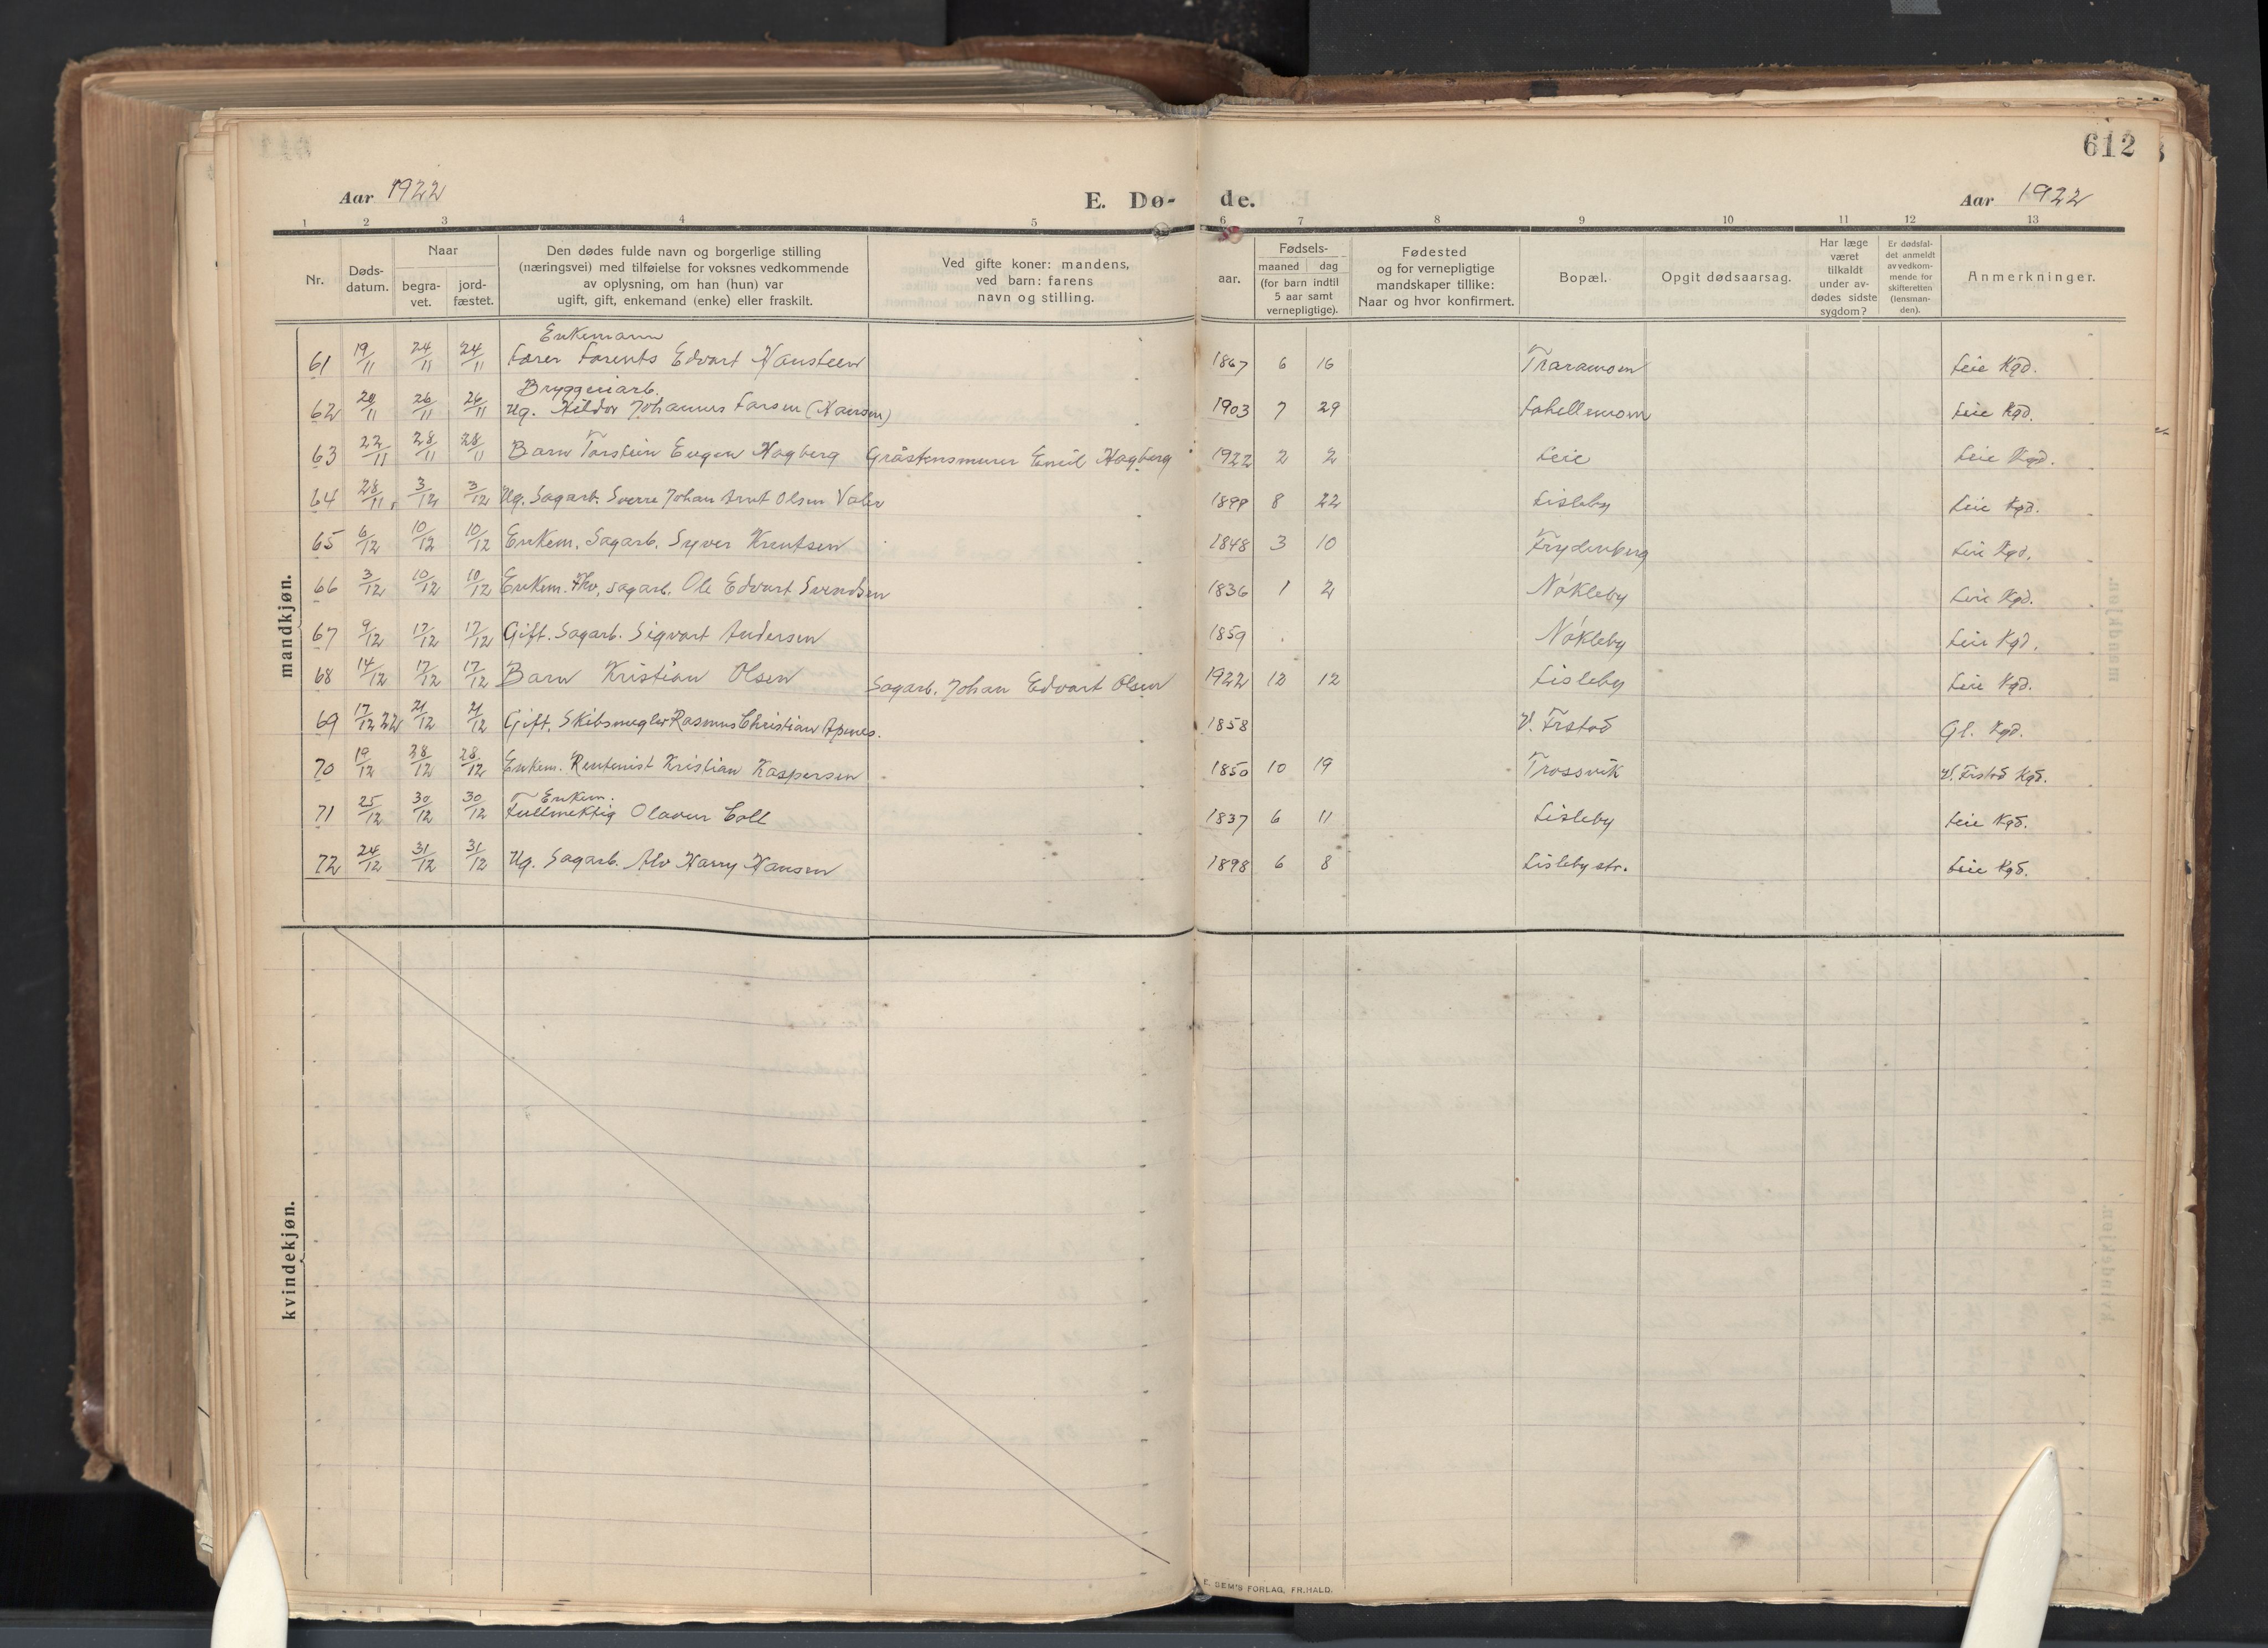 612
Aar 1922 E. Dø- de. Aar 1922
1 2 3 4 5 6 7 8 9 10 11 12 13
Nr.
Døds-
datum.
Naar
begra-
vet.
jord-
fæstet.
Den dødes fulde navn og borgerlige stilling
(næringsvei) med tilføielse for voksnes vedkommende
av oplysning, om han (hun) var
ugift, gift, enkemand (enke) eller fraskilt.
Ved gifte koner: mandens,
ved barn: farens
navn og stilling.
aar.
Fødsels-
maaned dag
(for barn indtil
5 aar samt
vernepligtige).
Fødested
og for vernepligtige
mandskaper tillike:
Naar og hvor konfirmert.
Bopæl.
Opgit dødsaarsag.
Har læge
været
tilkaldt
under av-
dødes sidste
sygdom?
Er dødsfal-
det anmeldt
av vedkom-
mende for
skifteretten
(lensman-
den).
Anmerkninger.
mandkjøn.
Enkemann
61 19/11 24/11 24/11 Lærer Larents Edvart Hansteen 1867 6 16 Traramoen Leie Kgd.
Bryggeriarb.
62 20/11 26/11 26/11 Ug. Hildor Johannes Larsen (Hansen) 1903 7 29 Labellemoen Leie Kgd.
63 22/11 28/11 28/11 Barn Torstein Eugen Hagberg Gråstensmurer Emil Hagberg 1922 2 2 Leie Leie Kgd.
64 28/11 3/12 3/12 Ug. Sagarb. Sverre Johan Arnt Olsen Valer 1899 8 22 Lisleby Leie Kgd.
65 6/12 10/12 10/12 Enkem. Sagarb. Syver Knutsen 1848 3 10 Frydenberg Leie Kgd.
66 3/12 10/12 10/12 Enkem. Fhv. sagarb. Ole Edvart Svendsen 1836 1 2 Nøkleby Leie Kgd.
67 9/12 17/12 17/12 Gift. Sagarb. Sigvart Andersen 1859 Nøkleby Leie Kgd.
68 14/12 17/12 17/12 Barn Kristian Olsen Sagarb. Johan Edvart Olsen 1922 12 12 Lisleby Leie Kgd.
69 17/12 22 21/12 21/12 Gift. Skibsmegler Rasmus Christian Apenes. 1858 V. Frstad Gl. Kgd.
70 19/12 28/12 28/12 Enkem. Rentenist Kristian Kaspersen 1850 10 19 Trossvik V. Frstad Kgd.
Enkem.
71 25/12 30/12 30/12 Fullmektig Olaven Coll 1837 6 11 Lisleby Leie Kgd.
72 24/12 31/12 31/12 Ug. Sagarb. Alv Harry Hansen 1898 6 8 Lisleby str. Leie Kgd.
kvindekjøn.
E. SEM'S FORLAG, FR.HALD.